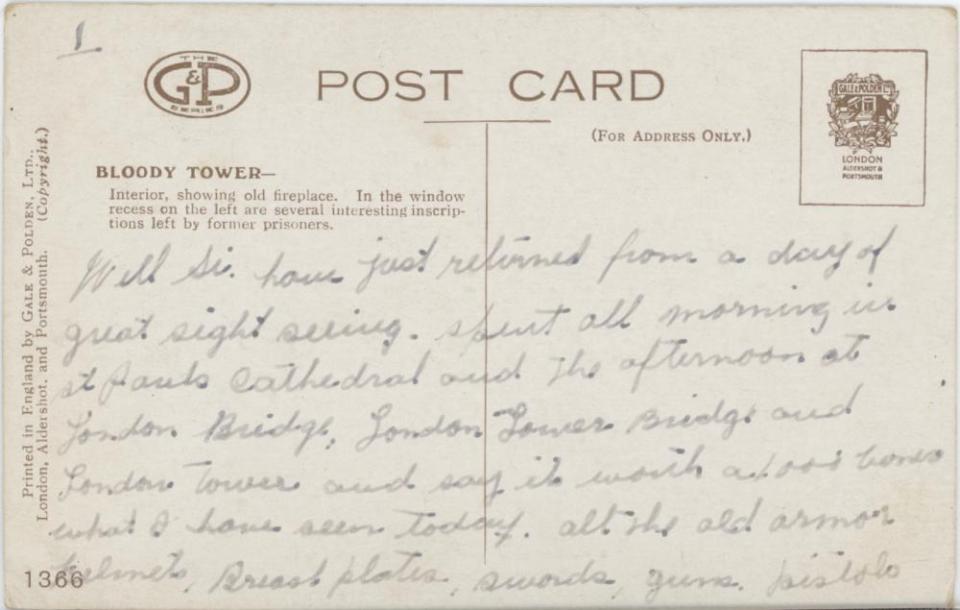 1
THE
G&P
SERIES
POST CARD
(FOR ADDRESS ONLY.)
GALE & POLDEN LTD
LONDON
ALDERSHOT &
PORTSMOUTH
Printed in England by GALE & POLDEN, LTD.,
London, Aldershot, and Portsmouth. (Copyright.)
BLOODY TOWER—
Interior, showing old fireplace. In the window
recess on the left are several interesting inscrip-
tions left by former prisoners.
Well Si. have just returned from a day of
great sight seeing. spent all morning in
st Pauls Cathedral and the afternoon at
London Bridge, London Tower Bridge and
London Tower and say it worth a 1000 bones
what I have seen today. all the old armor
helmets, Breast plates, swords, guns. pistols
1366